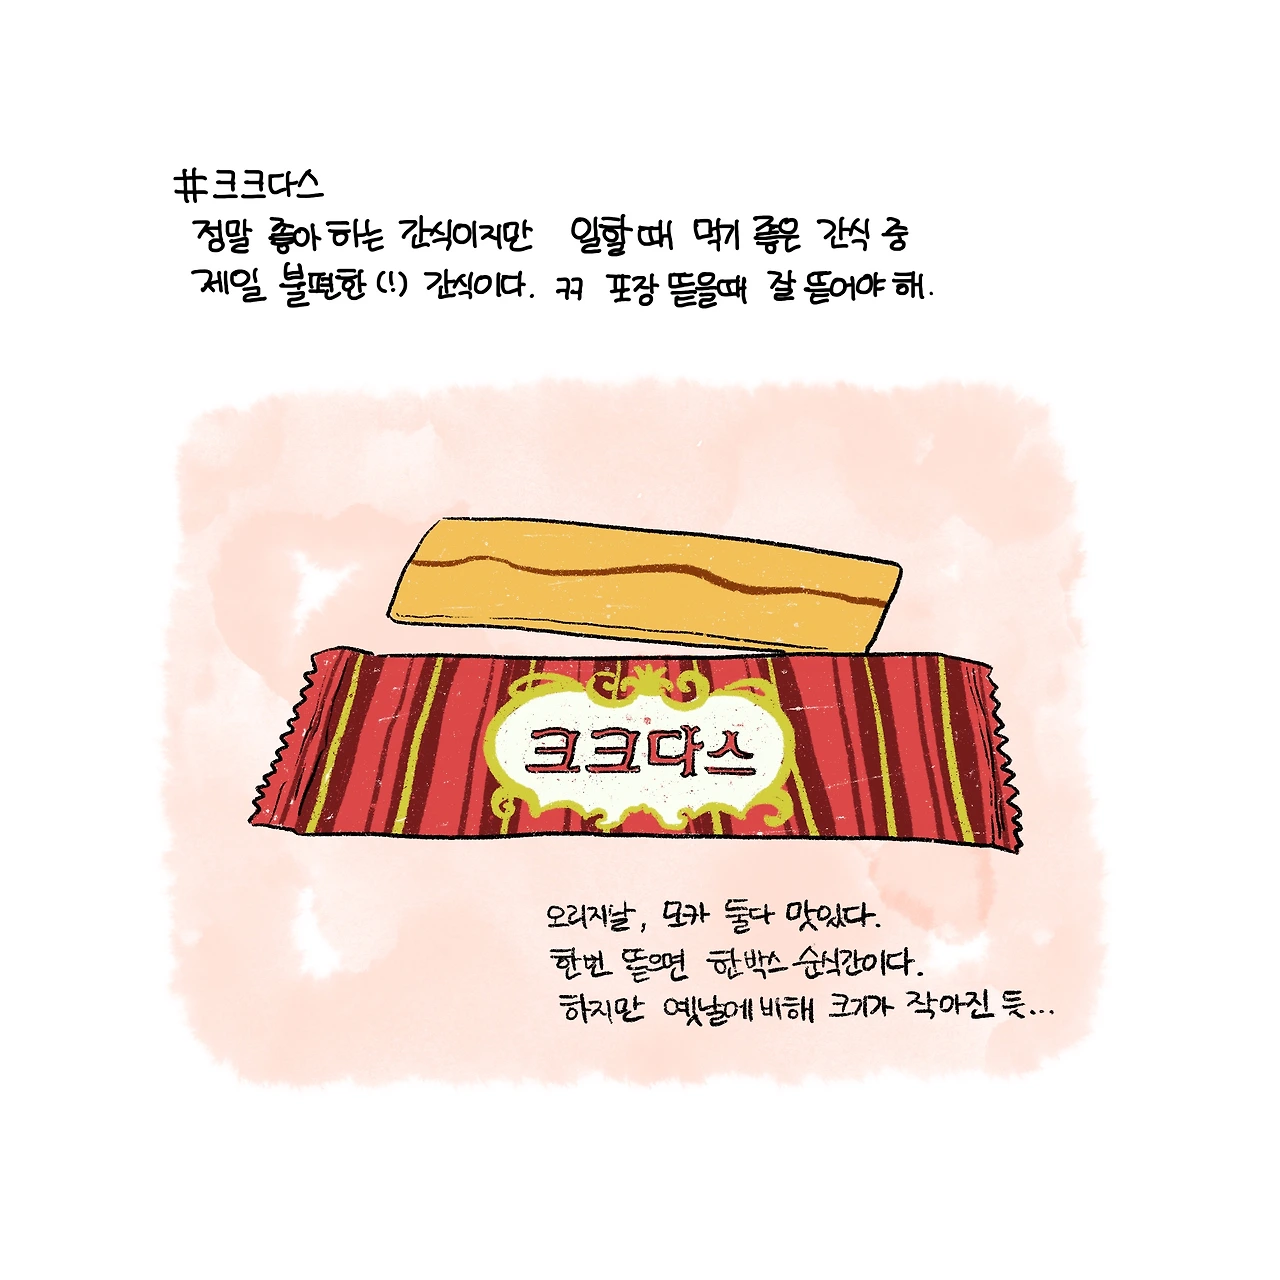 #크크다스
정말 좋아 하는 간식이지만 일할 때 먹기 좋은 간식 중
제일 불편한(!) 간식이다. ㄲㄲ 포장 뜯을때 잘 뜯어야 해.
크크다스
오리지날, 모카 둘다 맛있다.
한번 뜯으면 한박스 순식간이다.
하지만 옛날에 비해 크기가 작아진 듯...